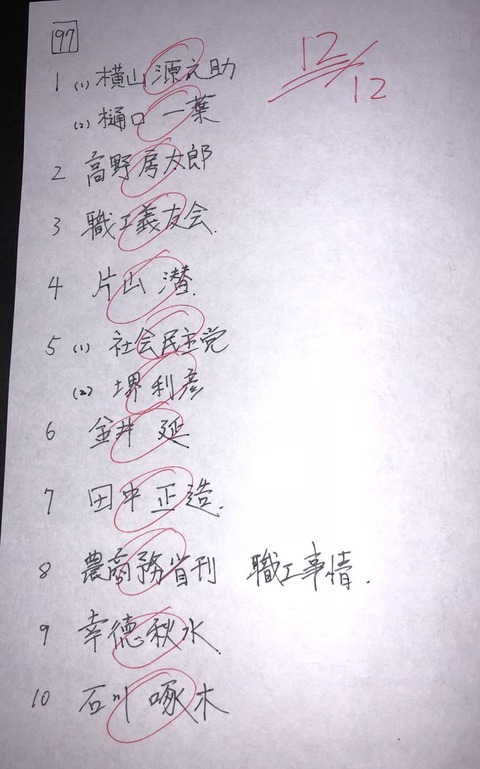 97
12/12
1 (1) 横山源之助
(2) 樋口一葉
2 高野房太郎
3 職工義友会.
4 片山潜.
5 (1) 社会民主党
(2) 堺利彦
6 金井延
7 田中正造.
8 農商務省刊 職工事情.
9 幸徳秋水
10 石川啄木